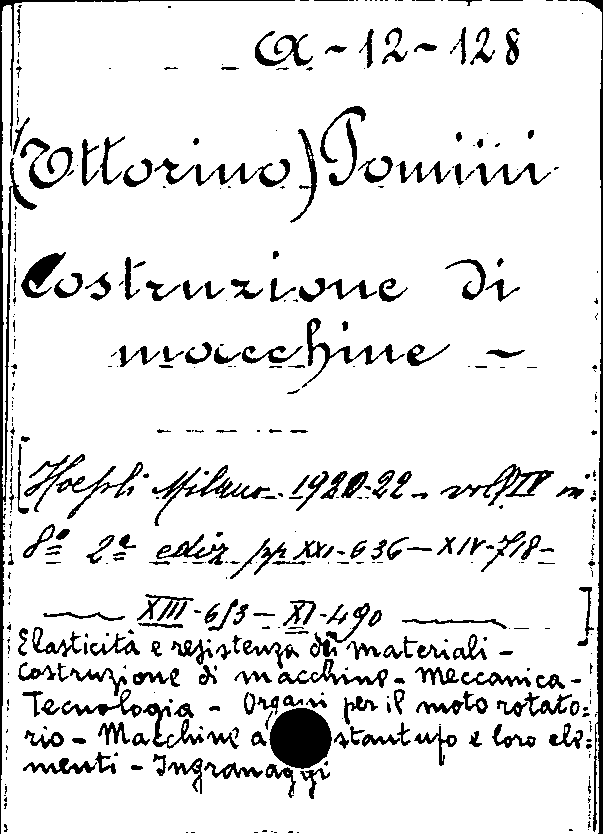 A-12-128
(Ottorino) Pomini
Costruzione di
macchine -
[Hoepli Milano. 1920-22 - vol. IV in
8º 2ª ediz pp XXI-636 - XIV-718-
XIII-653 - XI-490 ]
Elasticità e resistenza dei materiali -
Costruzione di macchine - Meccanica -
Tecnologia - Organi per il moto rotato=
rio - Macchine a stantufo e loro ele=
menti - Ingranaggi